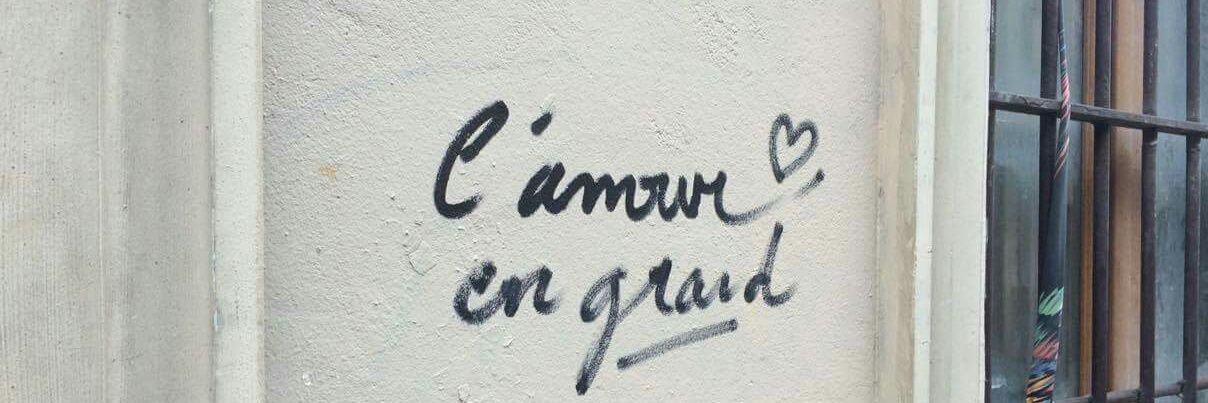 l'amour
en grand